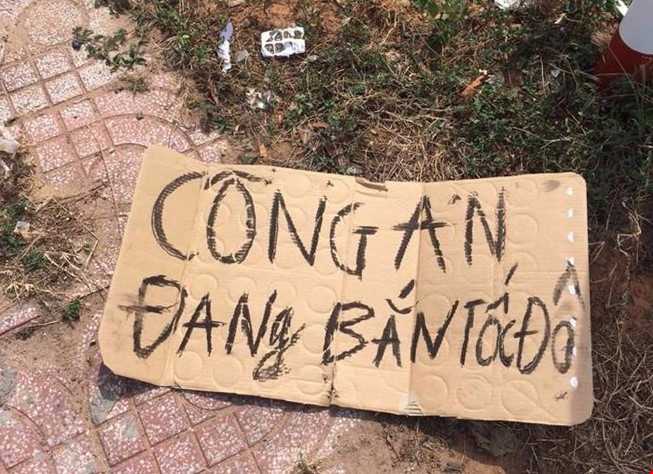 CÔNG AN
ĐANg BẮN TỐC ĐÔ